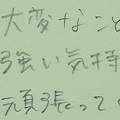 大変なこと
強い気持
頑張って